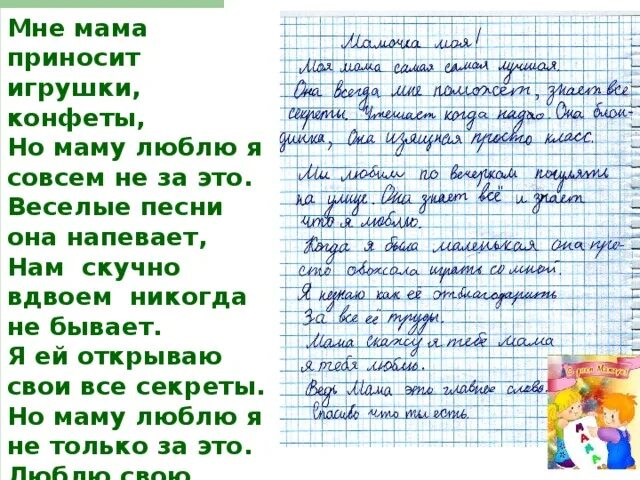 Мне мама
приносит
игрушки,
конфеты,
Но маму люблю я
совсем не за это.
Веселые песни
она напевает,
Нам скучно
вдвоем никогда
не бывает.
Я ей открываю
свои все секреты.
Но маму люблю я
не только за это.
Люблю свою
Мамочка моя!
Моя мама самая самая лучшая.
Она всегда мне поможет, знает все
секреты. Утешает когда надо. Она блон-
динка, Она изящная просто класс.
Ми любим по вечеркам погулять
на улице. Она знает всё и знает
что я люблю.
Когда я была маленькая она про-
сто обожала играть со мной.
Я незнаю как её отблагодарить
За все ее труды.
Мама скажу я тебе мама
я тебя люблю.
Ведь Мама это главное слово.
Спасибо что ты есть.
МАМА